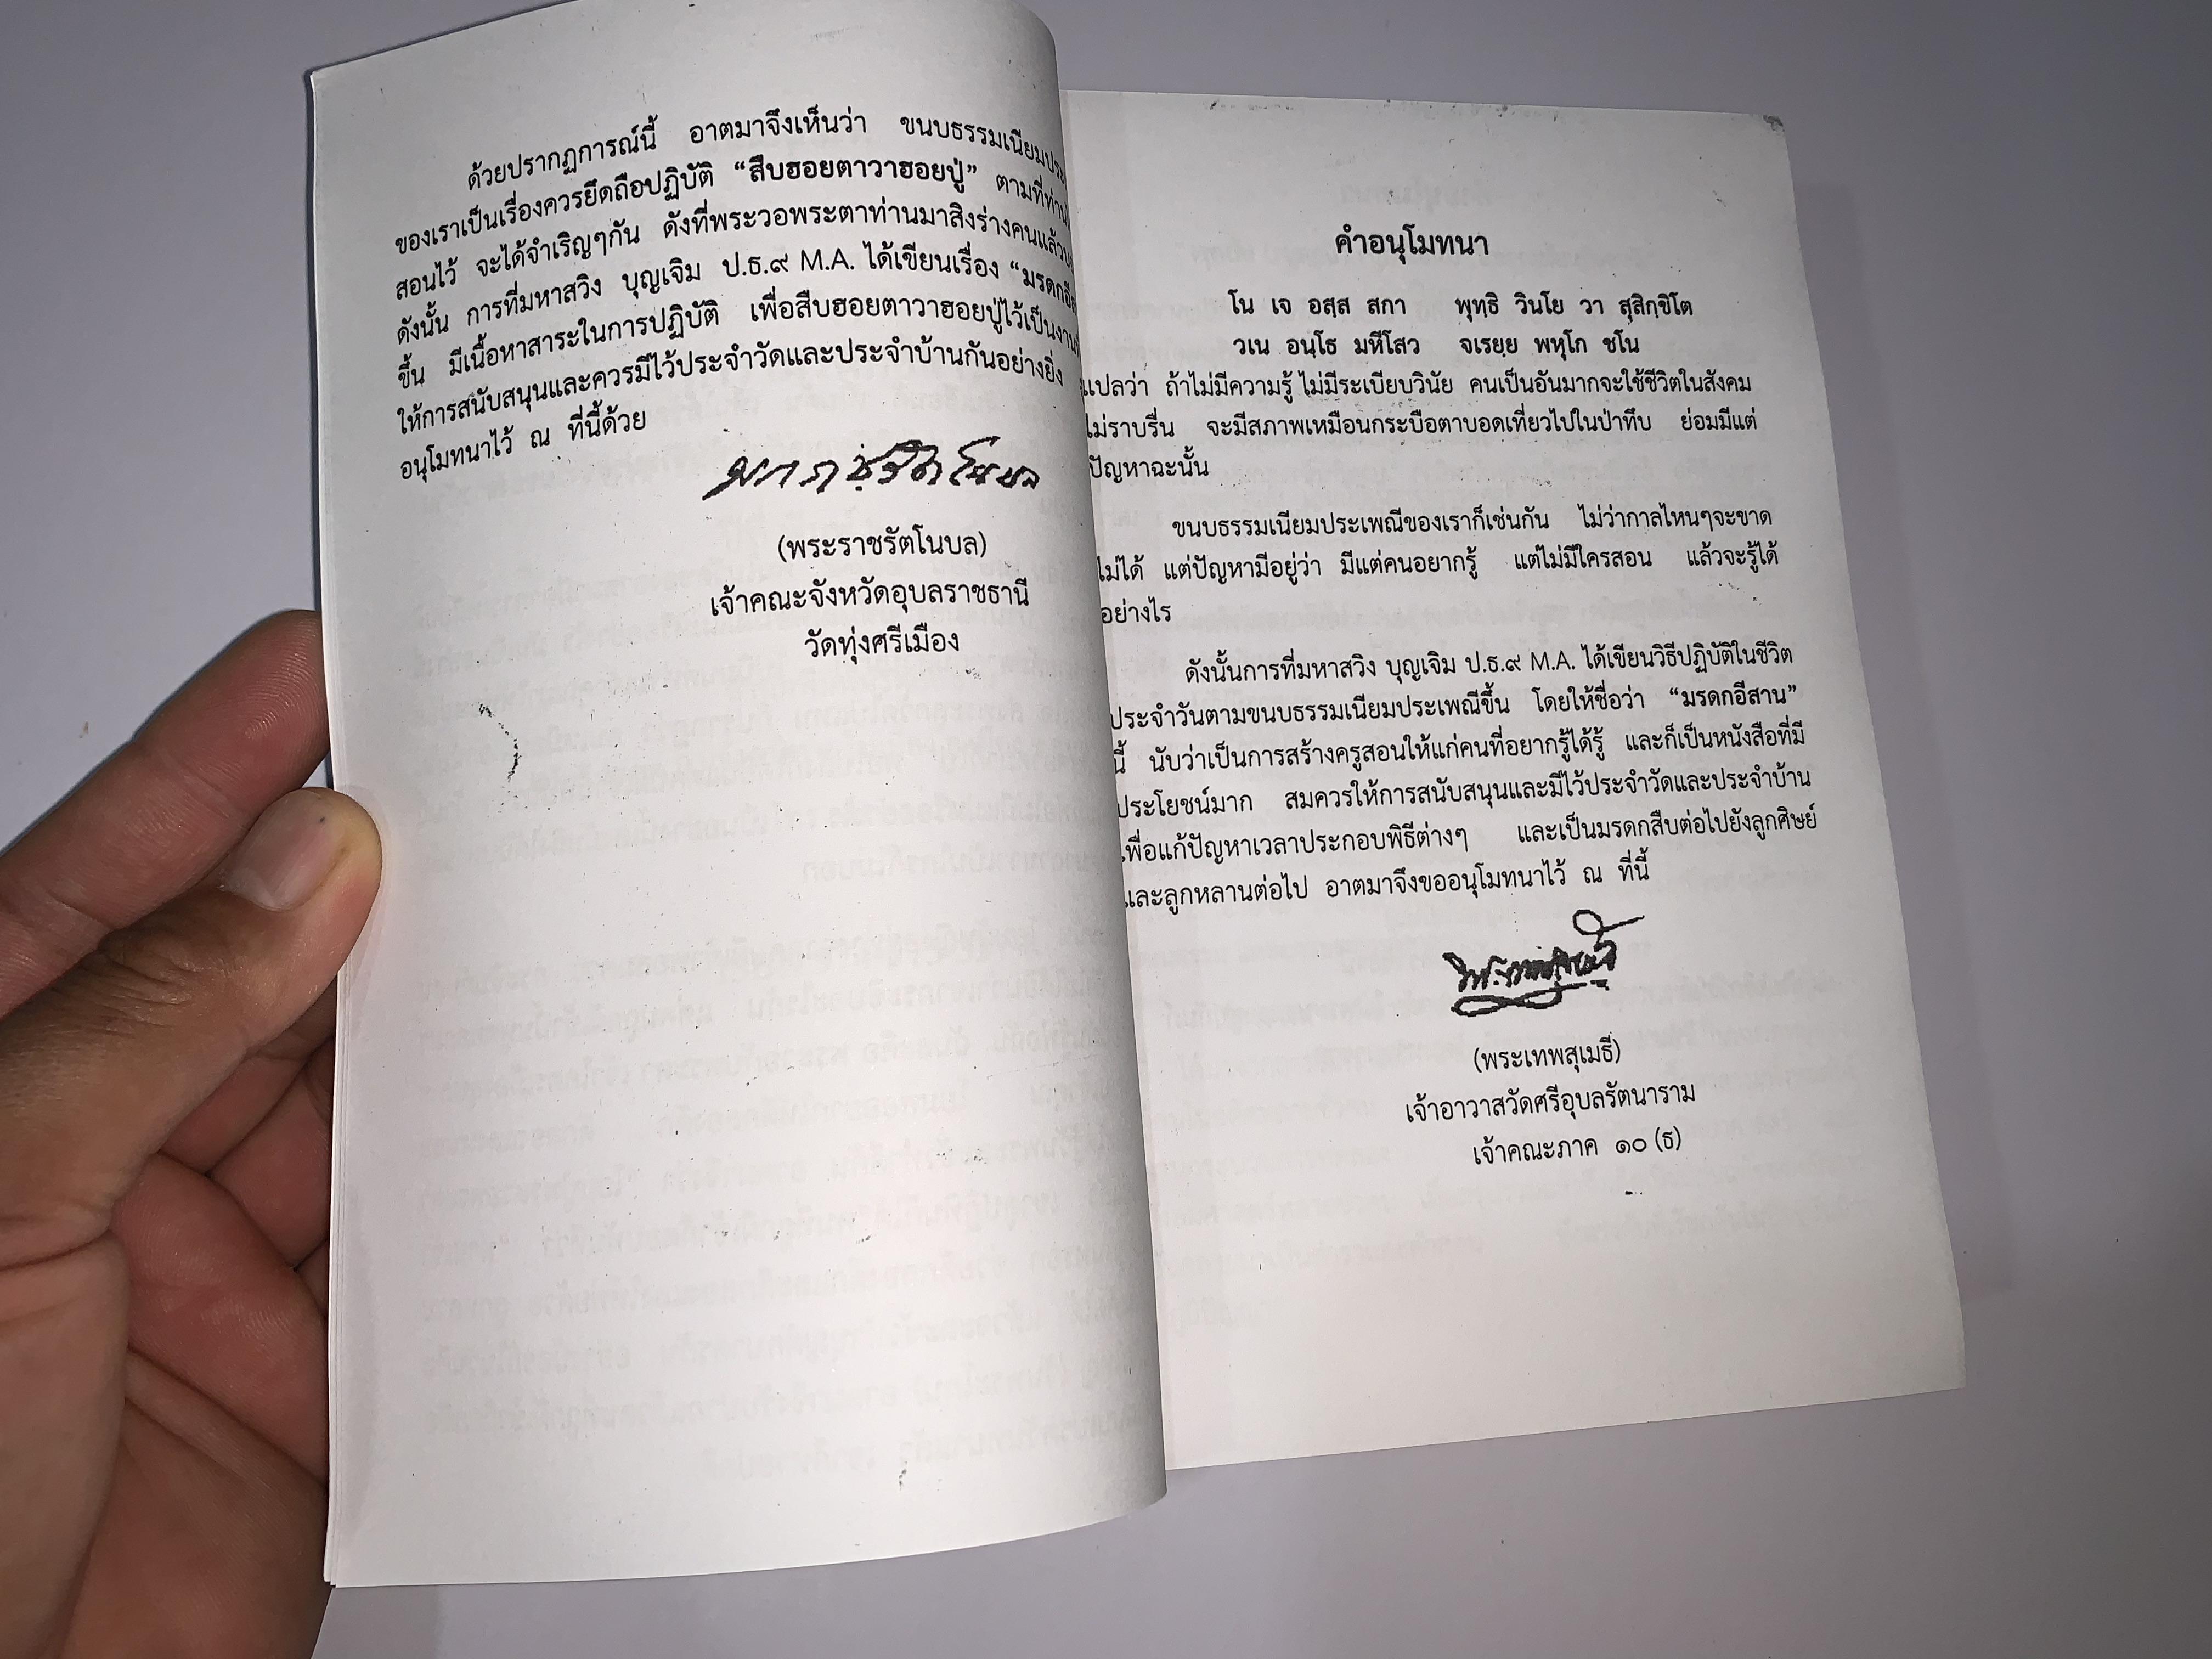 ด้วยปรากฏการณ์นี้ อาตมาจึงเห็นว่า ขนบธรรมเนียมประ
ของเราเป็นเรื่องควรยึดถือปฏิบัติ “สืบฮอยตาวาฮอยปู่” ตามที่ท่าน
สอนไว้ จะได้จำเริญๆกัน ดังที่พระวอพระตาท่านมาสิงร่างคนแล้ว
ดังนั้น การที่มหาสวิง บุญเจิม ป.ธ.๙ M.A. ได้เขียนเรื่อง “มรดกอีส
ขึ้น มีเนื้อหาสาระในการปฏิบัติ เพื่อสืบฮอยตาวาฮอยปู่ไว้เป็นงาน
ให้การสนับสนุนและควรมีไว้ประจำวัดและประจำบ้านกันอย่างยิ่ง
อนุโมทนาไว้ ณ ที่นี้ด้วย
(พระราชรัตโนบล)
เจ้าคณะจังหวัดอุบลราชธานี
วัดทุ่งศรีเมือง
คำอนุโมทนา
โน เจ อสฺส สกา พุทฺธิ วินโย วา สุสิกฺขิโต
วเน อนฺโธ มหึโสว จเรยฺย พหุโก ชโน
แปลว่า ถ้าไม่มีความรู้ ไม่มีระเบียบวินัย คนเป็นอันมากจะใช้ชีวิตในสังคม
ไม่ราบรื่น จะมีสภาพเหมือนกระบือตาบอดเที่ยวไปในป่าทึบ ย่อมมีแต่
ปัญหาฉะนั้น
ขนบธรรมเนียมประเพณีของเราก็เช่นกัน ไม่ว่ากาลไหนๆจะขาด
ไม่ได้ แต่ปัญหามีอยู่ว่า มีแต่คนอยากรู้ แต่ไม่มีใครสอน แล้วจะรู้ได้
อย่างไร
ดังนั้นการที่มหาสวิง บุญเจิม ป.ธ.๙ M.A. ได้เขียนวิธีปฏิบัติในชีวิต
ประจำวันตามขนบธรรมเนียมประเพณีขึ้น โดยให้ชื่อว่า “มรดกอีสาน”
นี้ นับว่าเป็นการสร้างครูสอนให้แก่คนที่อยากรู้ได้รู้ และก็เป็นหนังสือที่มี
ประโยชน์มาก สมควรให้การสนับสนุนและมีไว้ประจำวัดและประจำบ้าน
เพื่อแก้ปัญหาเวลาประกอบพิธีต่างๆ และเป็นมรดกสืบต่อไปยังลูกศิษย์
และลูกหลานต่อไป อาตมาจึงขออนุโมทนาไว้ ณ ที่นี้
(พระเทพสุเมธี)
เจ้าอาวาสวัดศรีอุบลรัตนาราม
เจ้าคณะภาค ๑๐ (ธ)